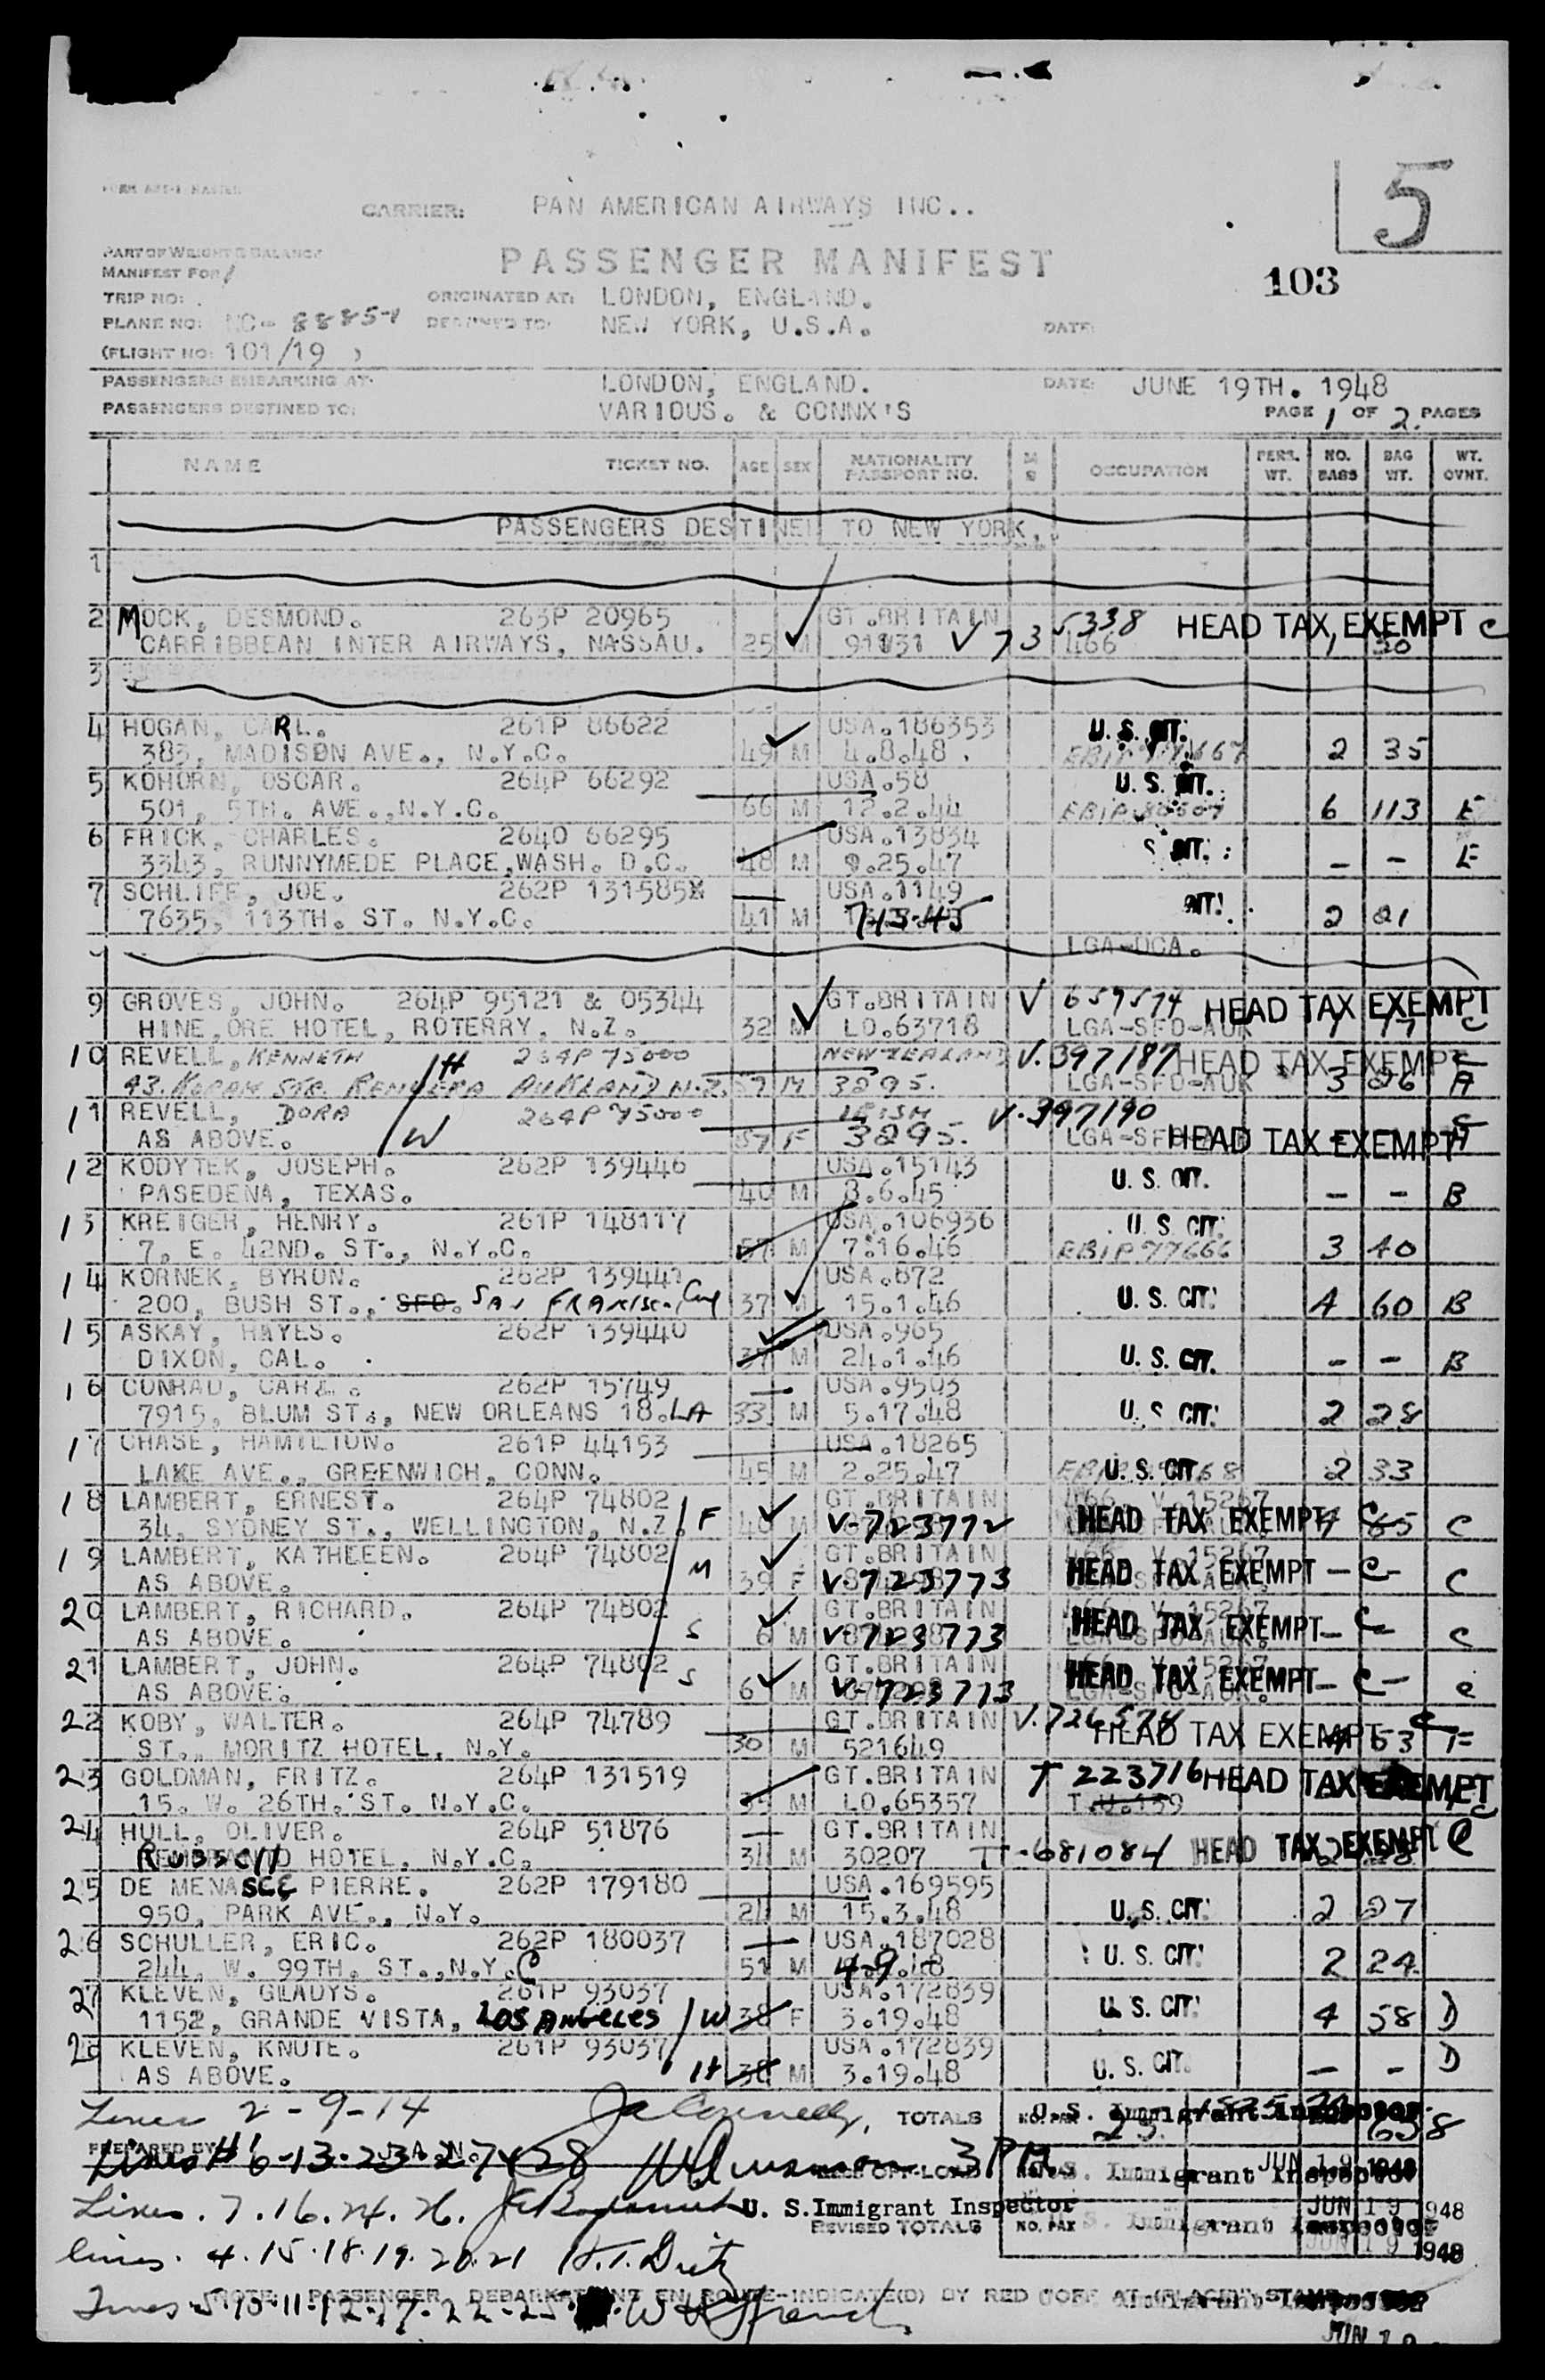 5
CARRIER: PAN AMERICAN AIRWAYS INC..
PART OF WEIGHT & BALANCE
PASSENGER MANIFEST
MANIFEST FOR
103
TRIP NO: ORIGINATED AT: LONDON, ENGLAND.
PLANE NO: NC- DESTINED TO: NEW YORK, U.S.A. DATE:
(FLIGHT NO: 101/19 )
PASSENGERS EMBARKING AT: LONDON, ENGLAND. DATE: JUNE 19TH. 1948
PASSENGERS DESTINED TO: VARIOUS. & CONNX'S PAGE 1 OF 2. PAGES
NAME TICKET NO. AGE SEX NATIONALITY PASSPORT NO. M S OCCUPATION PERS. WT. NO. BAGS BAG WT. WT. OVNT.
PASSENGERS DESTINED TO NEW YORK.
1
2 MOCK, DESMOND. 263P 20965 GT.BRITAIN 5338 HEAD TAX EXEMPT C
CARRIBBEAN INTER AIRWAYS, NASSAU. 25 M V 73 466
3
4 HOGAN, CARL. 261P 86622 USA.186353 U.S. CIT.
383, MADISON AVE., N.Y.C. 49 M 4.8.48. 2 35
5 KOHORN, OSCAR. 264P 66292 USA.58 U.S. CIT.
501, 5TH. AVE.,N.Y.C. 66 M 12.2.44 6 113 E
6 FRICK, CHARLES. 2640 66295 USA.13834 S CIT.
3343, RUNNYMEDE PLACE,WASH. D.C. 48 M 9.25.47 – – E
7 SCHLIFF, JOE. 262P 131585 USA.1149 CIT.
7635, 113TH. ST. N.Y.C. 41 M 2 21
LGA-DCA.
9 GROVES, JOHN. 264P 95121 & 05344 GT.BRITAIN V 659574 HEAD TAX EXEMPT
HINE,ORE HOTEL, ROTERRY, N.Z. 32 M LO.63718 LGA-SFO-AUK 1 17 C
10 REVELL, KENNETH 264P 75000 NEW ZEALAND V.397187 HEAD TAX EXEMPT
AUKLAND N.Z. 57 M 3295. LGA-SFO-AUK 3 26 A
11 REVELL, DORA 264P 75000 V.397190
AS ABOVE. W 57 F 3295. HEAD TAX EXEMPT
12 KODYTEK, JOSEPH. 262P 139446 USA.15143 U.S. CIT.
PASEDENA, TEXAS. 40 M 8.6.45 – – B
13 KREIGER, HENRY. 261P 148117 USA.106936 U.S. CIT.
7, E. 42ND. ST., N.Y.C. 57 M 7.16.46 EBIP 77666 3 40
14 KORNEK, BYRON. 262P 139441 USA.672
200, BUSH ST., SFO. 37 M 15.1.46 U.S. CIT. 4 60 B
15 ASKAY, HAYES. 262P 139440 USA.965
DIXON, CAL. 37 M 24.1.46 U.S. CIT. – – B
16 CONRAD, CARL. 262P 15749 USA.9503
7915, BLUM ST., NEW ORLEANS 18.LA 33 M 5.17.48 U.S. CIT. 2 28
17 CHASE, HAMILTON. 261P 44153 USA.18265
LAKE AVE., GREENWICH, CONN. 45 M 2.25.47 U.S. CIT. 2 33
18 LAMBERT, ERNEST. 264P 74802 GT.BRITAIN 466 V.15267
34, SYDNEY ST., WELLINGTON, N.Z. F M V-723772 HEAD TAX EXEMPT C
19 LAMBERT, KATHLEEN. 264P 74802 GT.BRITAIN
AS ABOVE. M 39 F V-723773 HEAD TAX EXEMPT –C– C
20 LAMBERT, RICHARD. 264P 74802 GT.BRITAIN
AS ABOVE. S 6 M V-723773 HEAD TAX EXEMPT – C – C
21 LAMBERT, JOHN. 264P 74802 GT.BRITAIN
AS ABOVE. S 6 M V-723773 HEAD TAX EXEMPT – C – C
22 KOBY, WALTER. 264P 74789 GT.BRITAIN V.726578
ST., MORITZ HOTEL, N.Y. 30 M 521649 HEAD TAX EXEMPT
23 GOLDMAN, FRITZ. 264P 131519 GT.BRITAIN T 223716 HEAD TAX EXEMPT
15. W. 26TH. ST. N.Y.C. M LO.65357 T.U.139
24 HULL, OLIVER. 264P 51876 GT.BRITAIN
HOTEL, N.Y.C. 31 M 30207 T-681084 HEAD TAX EXEMPT C
25 DE MENASCE PIERRE. 262P 179180 USA.169595
950, PARK AVE., N.Y. M 15.3.48 U.S. CIT. 2 27
26 SCHULLER, ERIC. 262P 180037 USA.187028
244, W. 99TH. ST.,N.Y.C 51 M U.S. CIT. 2 24
27 KLEVEN, GLADYS. 261P 93037 USA.172839
1152, GRANDE VISTA, LOS ANGELES W 38 F 3.19.48 U.S. CIT. 4 58 D
28 KLEVEN, KNUTE. 261P 93037 USA.172839
AS ABOVE. H 38 M 3.19.48 U.S. CIT. – – D
Lines 2-9-14 TOTALS NO. PAX U. S. Immigrant Inspector
PREPARED BY
Lines # 6-13-23-27 & 28 3PM Immigrant Inspector JUN 19 1948
Lines. 7.16.24.26. U. S. Immigrant Inspector JUN 19 1948
REVISED TOTALS NO. PAX
lines. 4.15.18.19.20.21 H.T. Dietz JUN 19 1948
Lines 5-10-11-12-17-22-25
NOTE: PASSENGER DEBARKATIONS EN ROUTE-INDICATE(D) BY RED
JUN 19